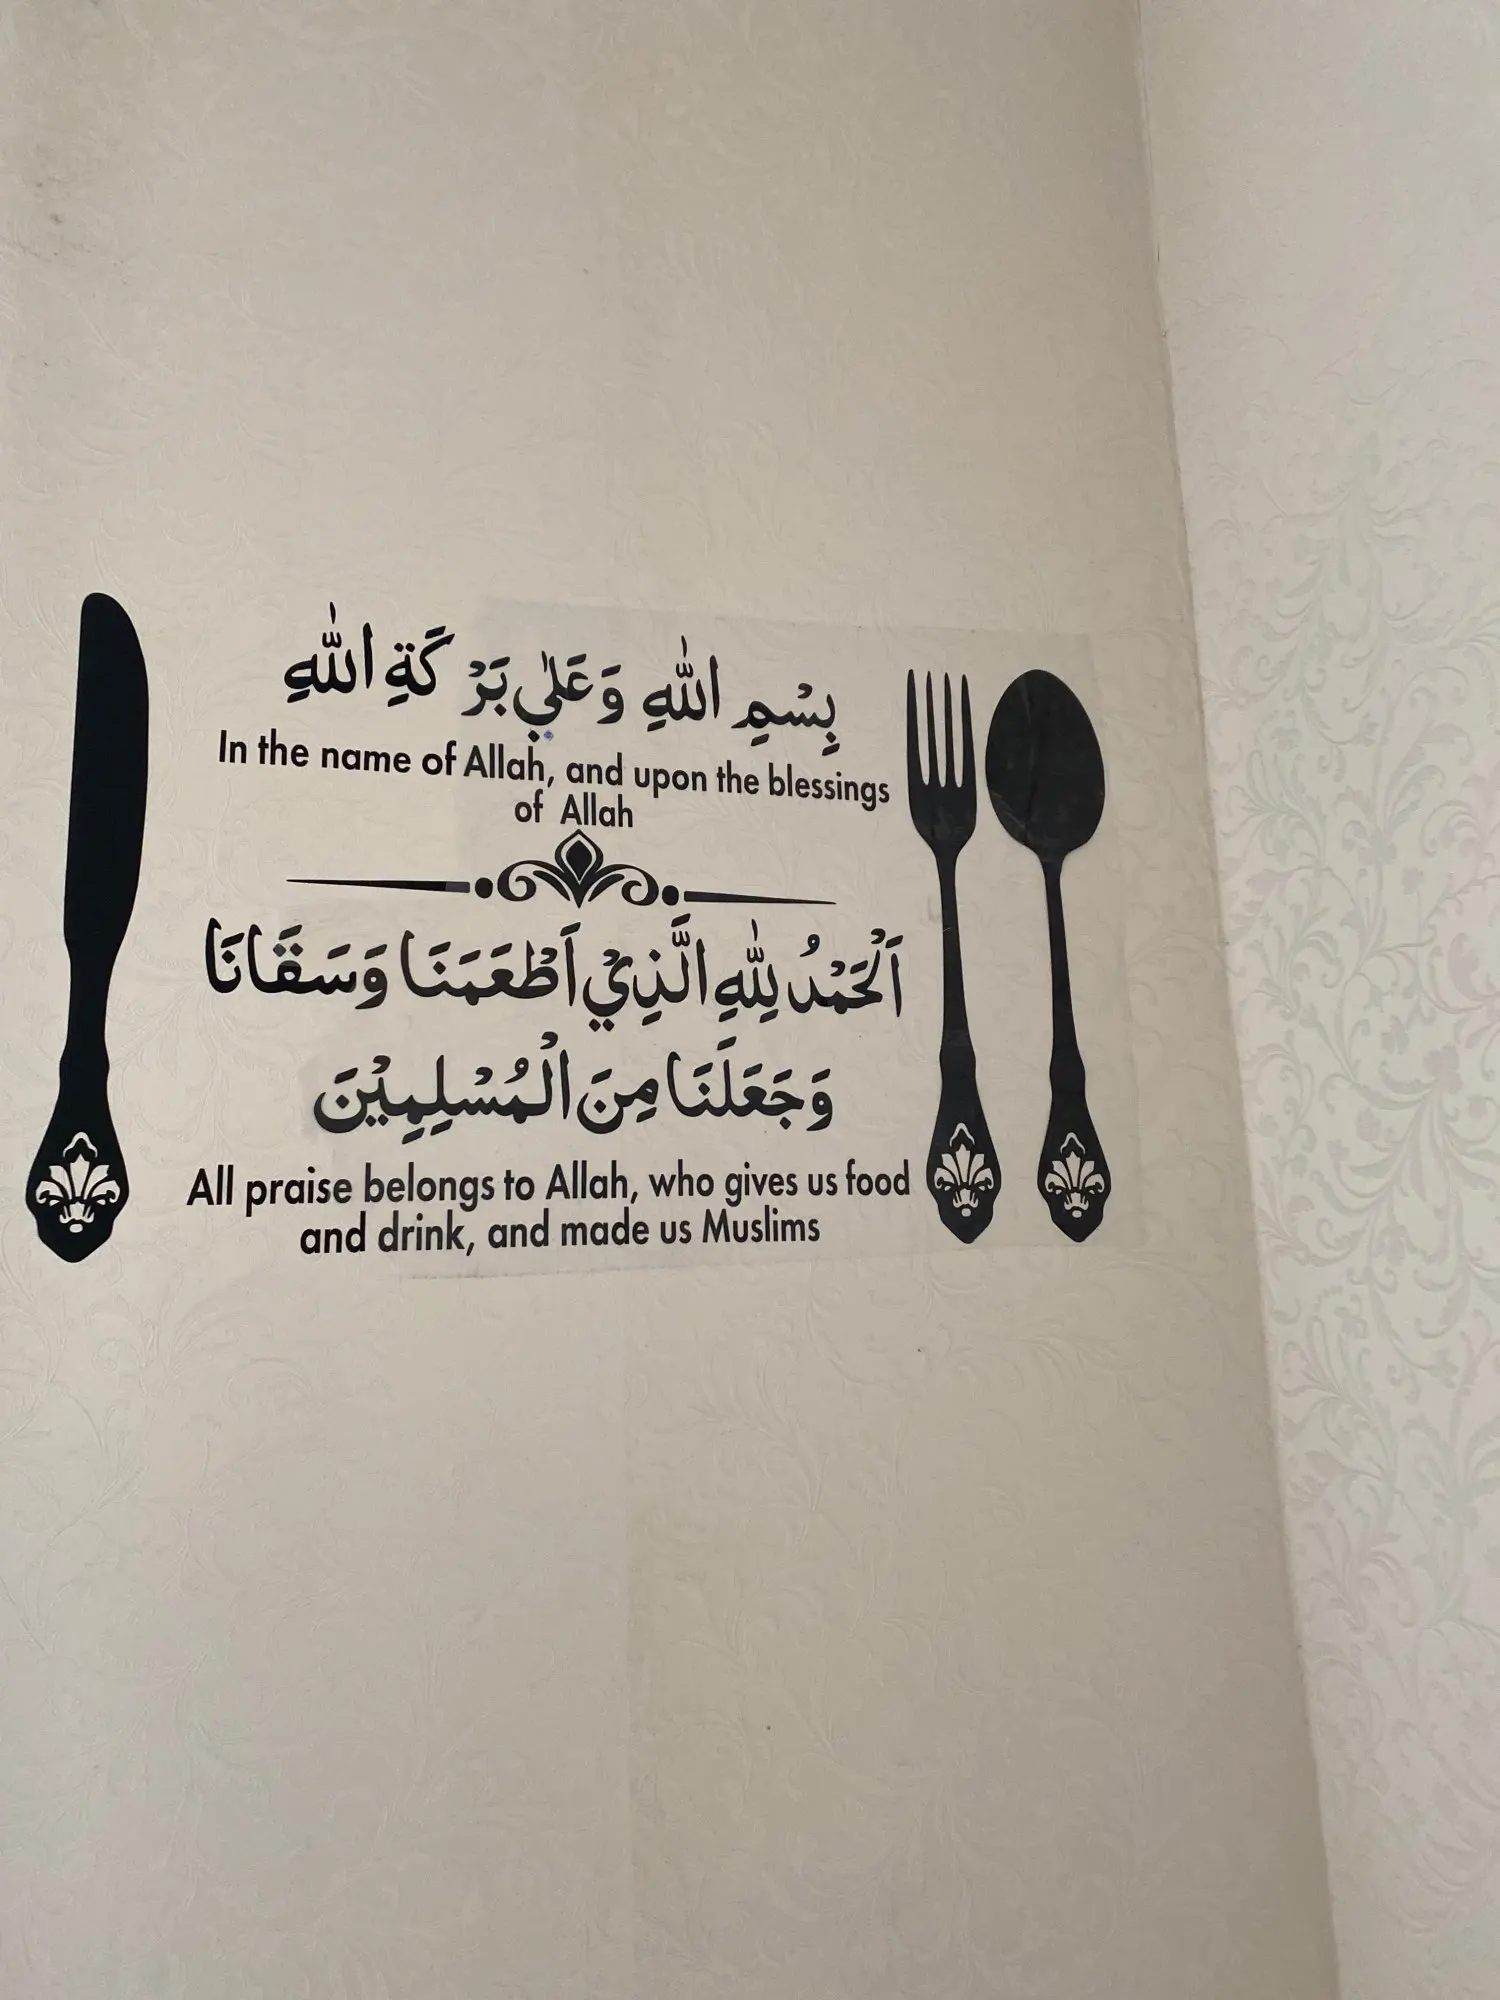 بِسْمِ اللّٰهِ وَعَلٰي بَرْ كَةِ اللّٰهِ
In the name of Allah, and upon the blessings
of Allah
اَلْحَمْدُ لِلّٰهِ الَّذِيْ اَطْعَمَنَا وَسَقَانَا
وَجَعَلَنَا مِنَ الْمُسْلِمِيْنَ
All praise belongs to Allah, who gives us food
and drink, and made us Muslims